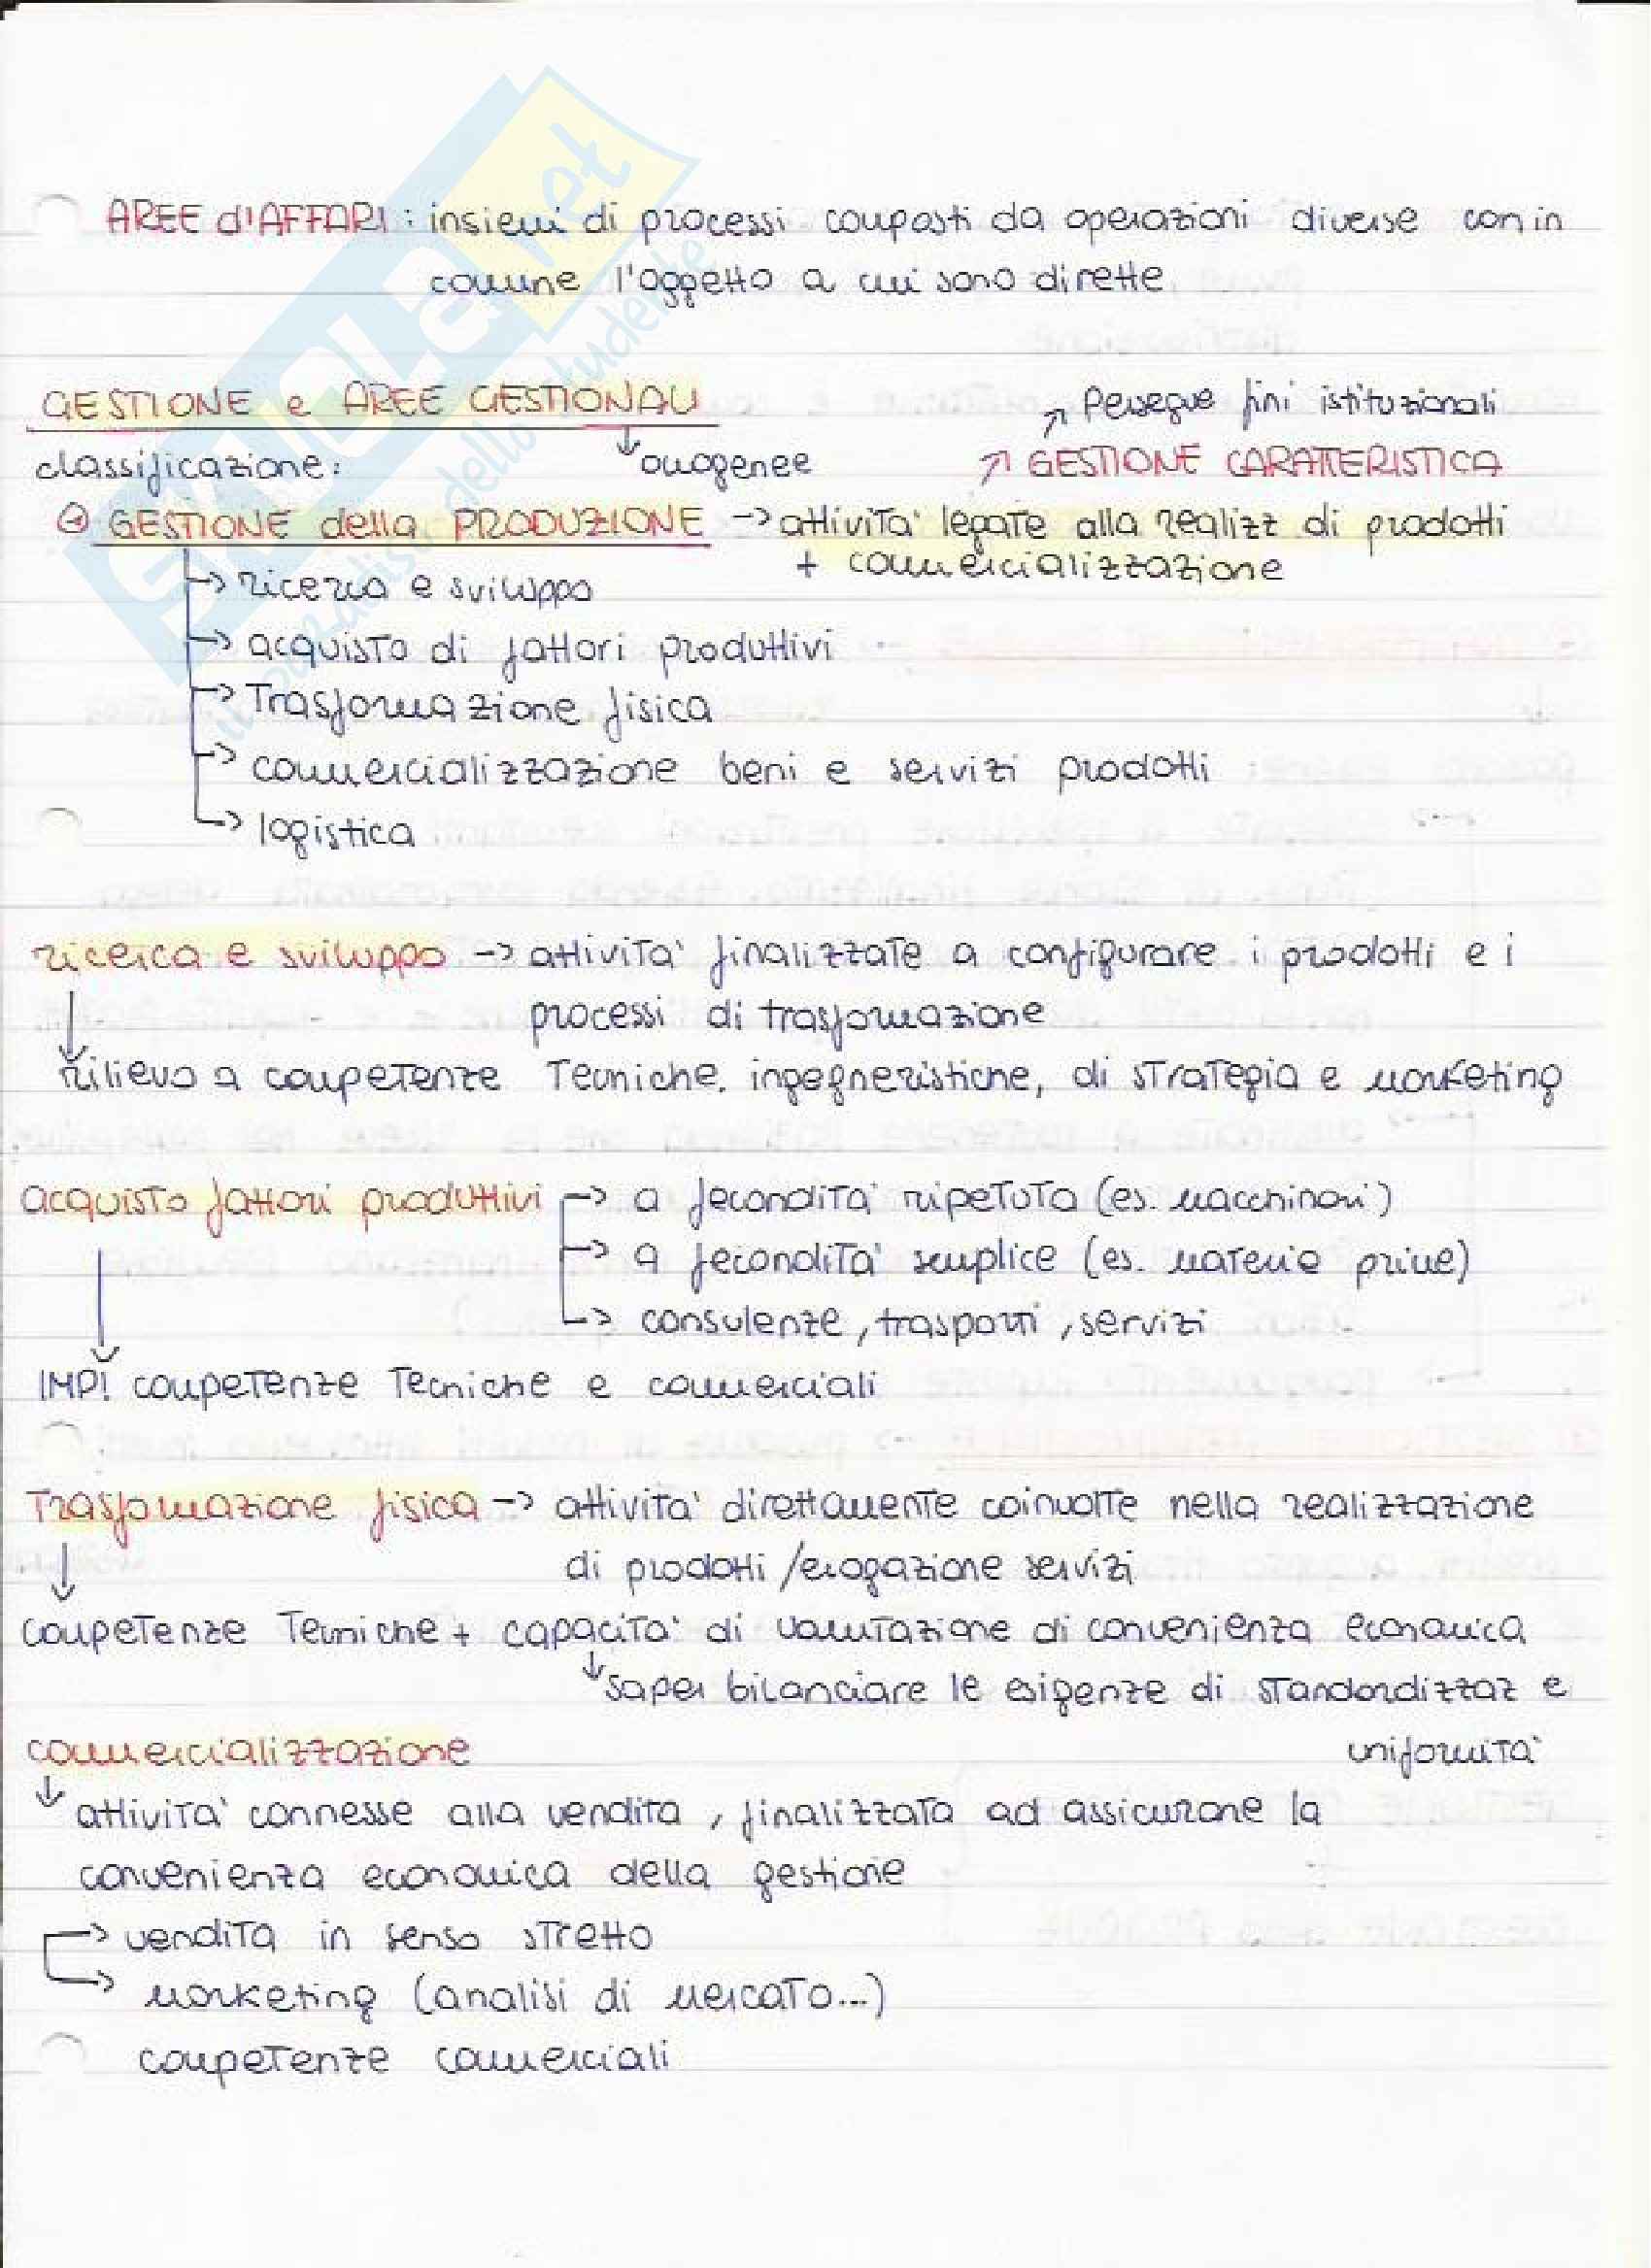 AREE d'AFFARI: insiemi di processi composti da operazioni diverse con in
comune l'oggetto a cui sono dirette
GESTIONE e AREE GESTIONALI
↗ Persegue fini istituzionali
classificazione:
↓ omogenee
↗ GESTIONE CARATTERISTICA
GESTIONE della PRODUZIONE -> attività legate alla realizz di prodotti
+ commercializzazione
-> ricerca e sviluppo
-> acquisto di fattori produttivi
-> Trasformazione fisica
-> commercializzazione beni e servizi prodotti
-> logistica
ricerca e sviluppo -> attività finalizzate a configurare i prodotti e i
processi di trasformazione
rilievo a competenze Tecniche, ingegneristiche, di strategia e marketing
acquisto fattori produttivi -> a fecondità ripetuta (es. macchinari)
-> a fecondità semplice (es. materie prime)
-> consulenze, trasporti, servizi
IMP! competenze Tecniche e commerciali
Trasformazione fisica -> attività direttamente coinvolte nella realizzazione
di prodotti /erogazione servizi
competenze Tecniche + capacità di valutazione di convenienza economica
↓ saper bilanciare le esigenze di standardizzaz e
uniformità
commercializzazione
↓ attività connesse alla vendita, finalizzata ad assicurare la
convenienza economica della gestione
-> vendita in senso stretto
-> marketing (analisi di mercato...)
competenze commerciali
SKUOLA.net
il paradiso dello studente